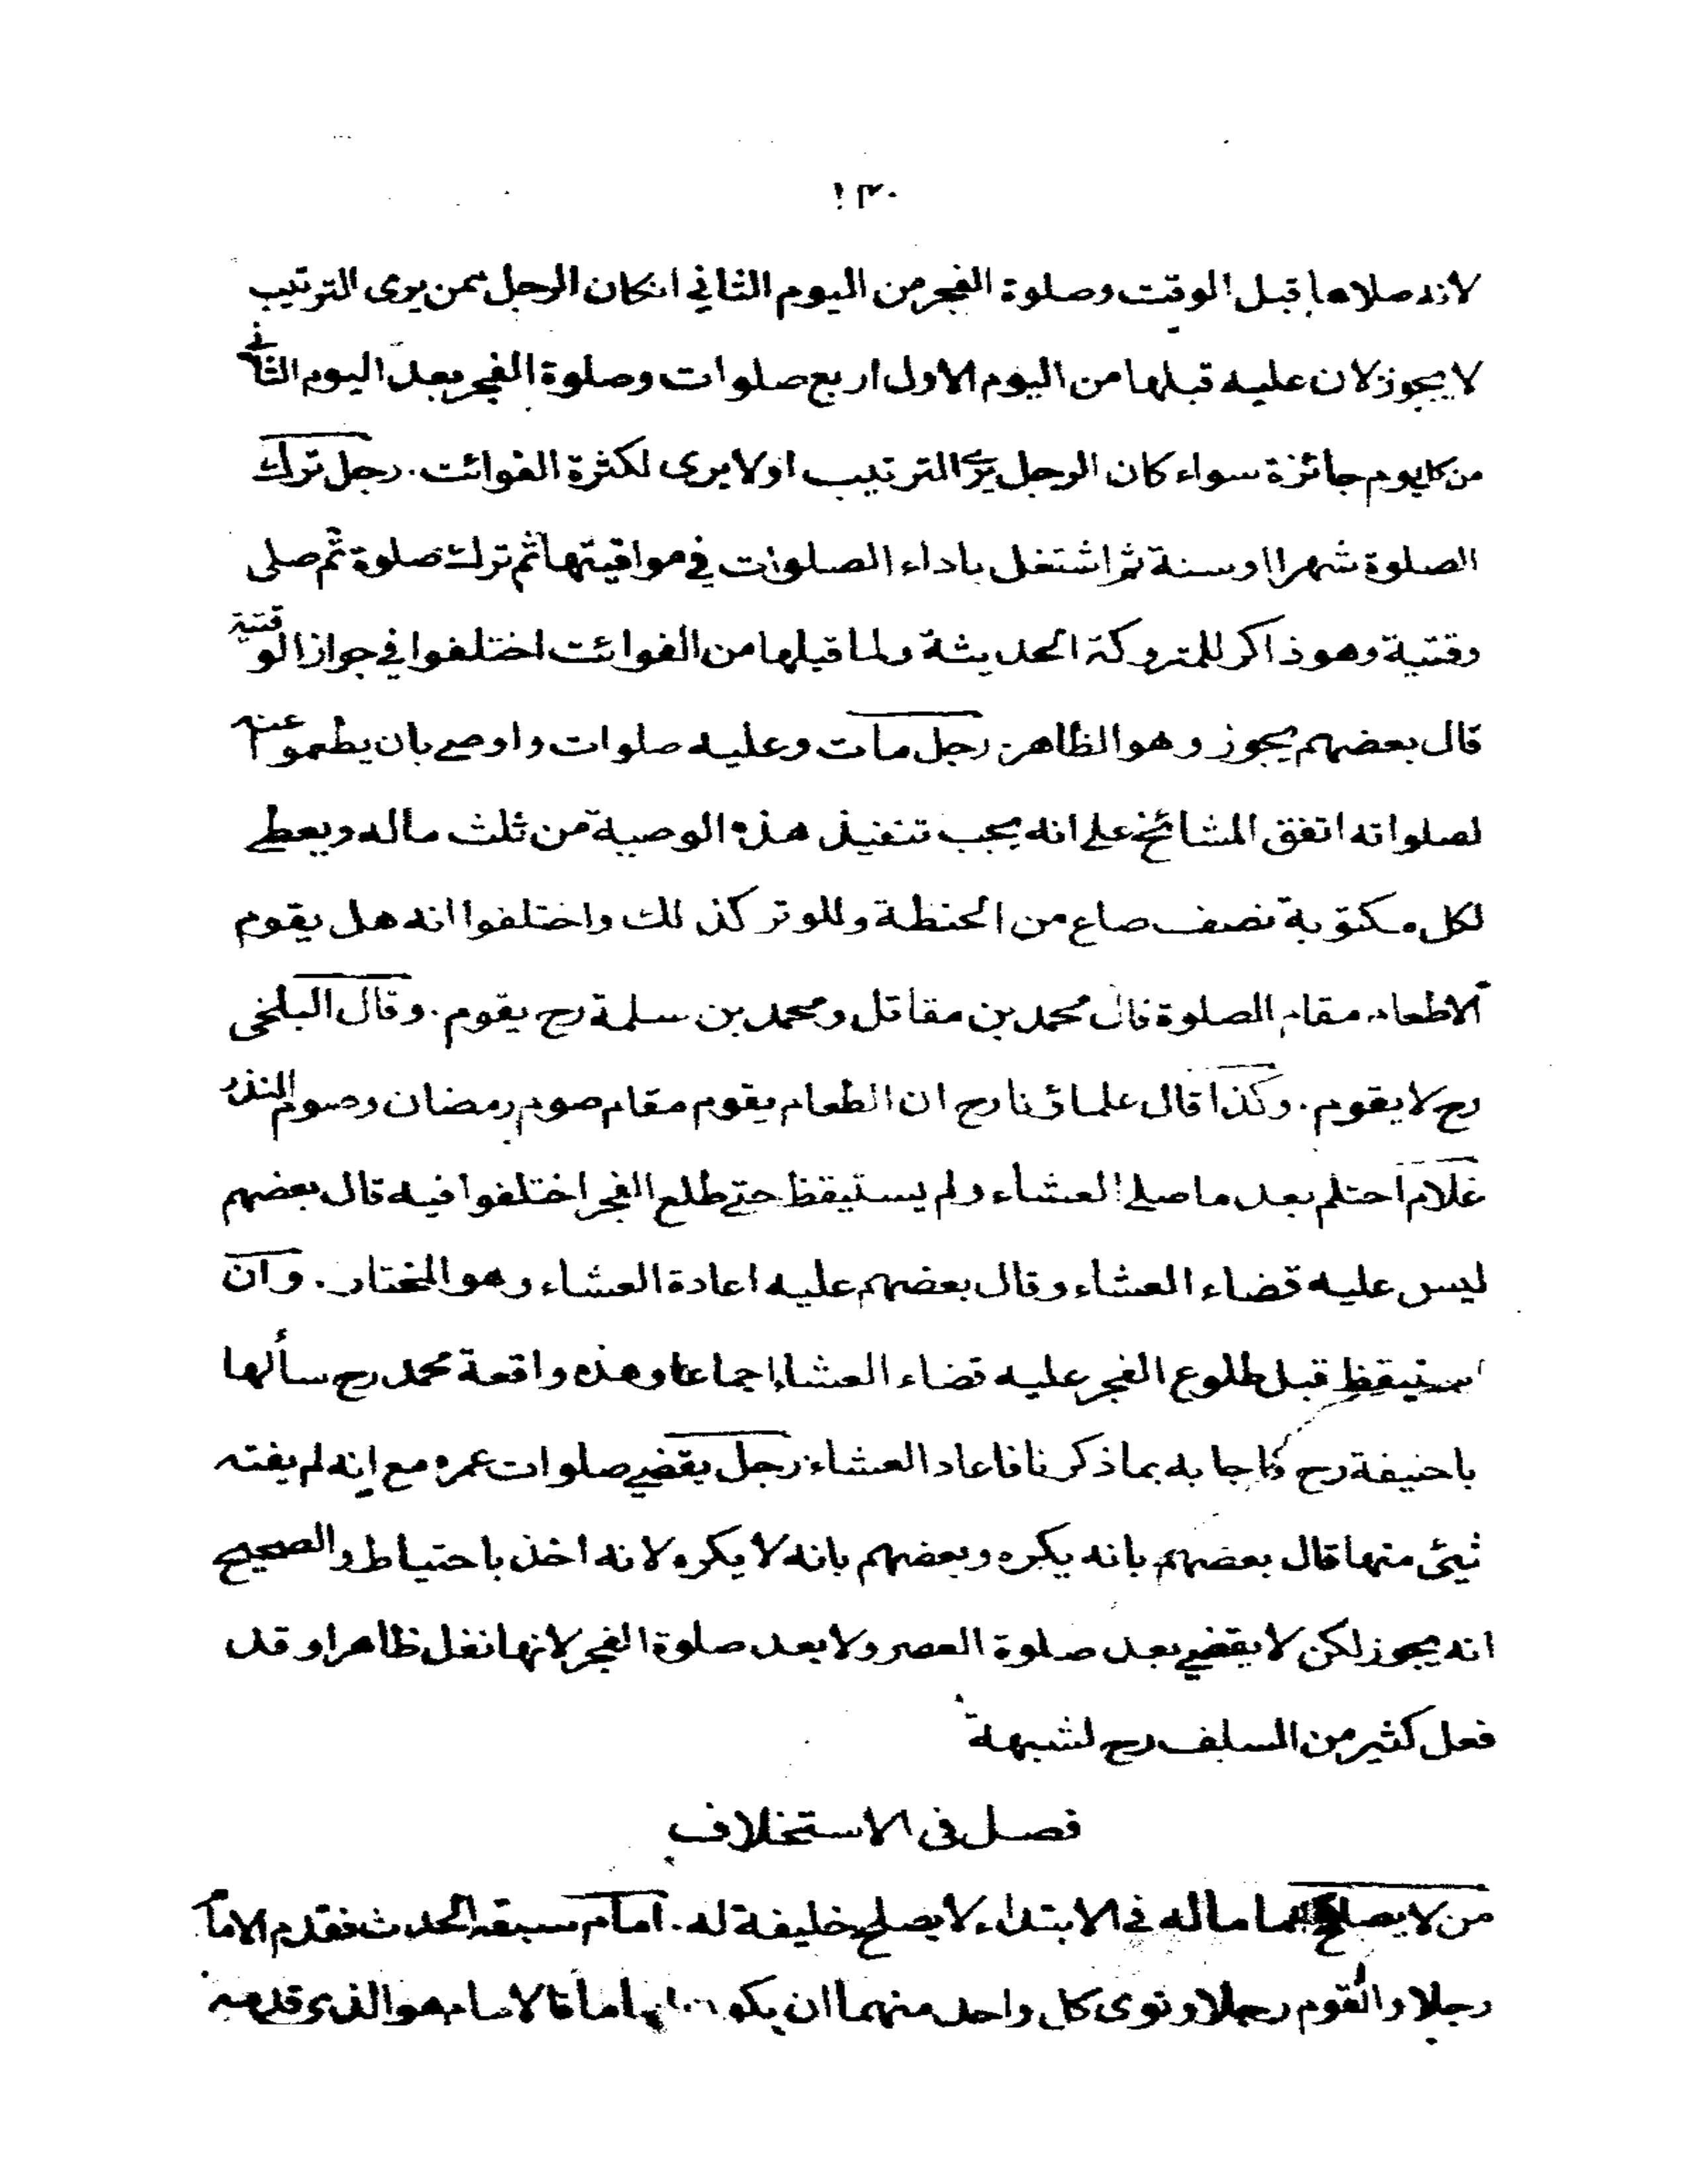 ١٣٠
لانه صلاها قبل الوقت وصلوة الفجر من اليوم الثاني انكان الرجل ممن يرى الترتيب
لا يجوز لان عليه قبلها من اليوم الاول اربع صلوات وصلوة الفجر بعد اليوم الثاني
من كل يوم جائزة سواء كان الرجل يرى الترتيب او لا يرى لكثرة الفوائت. رجل ترك
الصلوة شهرا او سنة ثم اشتغل باداء الصلوات في مواقيتها ثم ترك صلوة ثم صلى
وقتية وهو ذاكر للمتروكة الحديثة ولما قبلها من الفوائت اختلفوا في جواز الوقتية
قال بعضهم يجوز وهو الظاهر. رجل مات وعليه صلوات واوصى بان يطعموا عنه
لصلواته اتفق المشائخ على انه يجب تنفيذ هذه الوصية من ثلث ماله ويعطى
لكل مكتوبة نصف صاع من الحنطة وللوتر كذلك واختلفوا انه هل يقوم
الاطعام مقام الصلوة قال محمد بن مقاتل ومحمد بن سلمة رح يقوم. وقال البلخى
رح لا يقوم. وكذا قال علماؤنا رح ان الطعام يقوم مقام صوم رمضان وصوم النذر
غلام احتلم بعد ما صلى العشاء ولم يستيقظ حتى طلع الفجر اختلفوا فيه قال بعضهم
ليس عليه قضاء العشاء وقال بعضهم عليه اعادة العشاء وهو المختار. وان
استيقظ قبل طلوع الفجر عليه قضاء العشاء اجماعا وهذه واقعة محمد رح سألها
باحنيفة رح فاجابه بما ذكرنا فاعاد العشاء. رجل يقضي صلوات عمره مع انه لم يفته
شيئ منها قال بعضهم بانه يكره وبعضهم بانه لا يكره لانه اخذ باحتياط والصحيح
انه يجوز لكن لا يقضي بعد صلوة العصر ولا بعد صلوة الفجر لانها نفل ظاهرا وقد
فعل كثير من السلف رح لشبهة
فصل فى الاستخلاف
من لا يصلح اماما له في الابتداء لا يصلح خليفة له. امام سبقه الحدث فقدم الامام
رجلا والقوم رجلا ونوى كل واحد منهما ان يكون اماما فالامام هو الذى قدمه